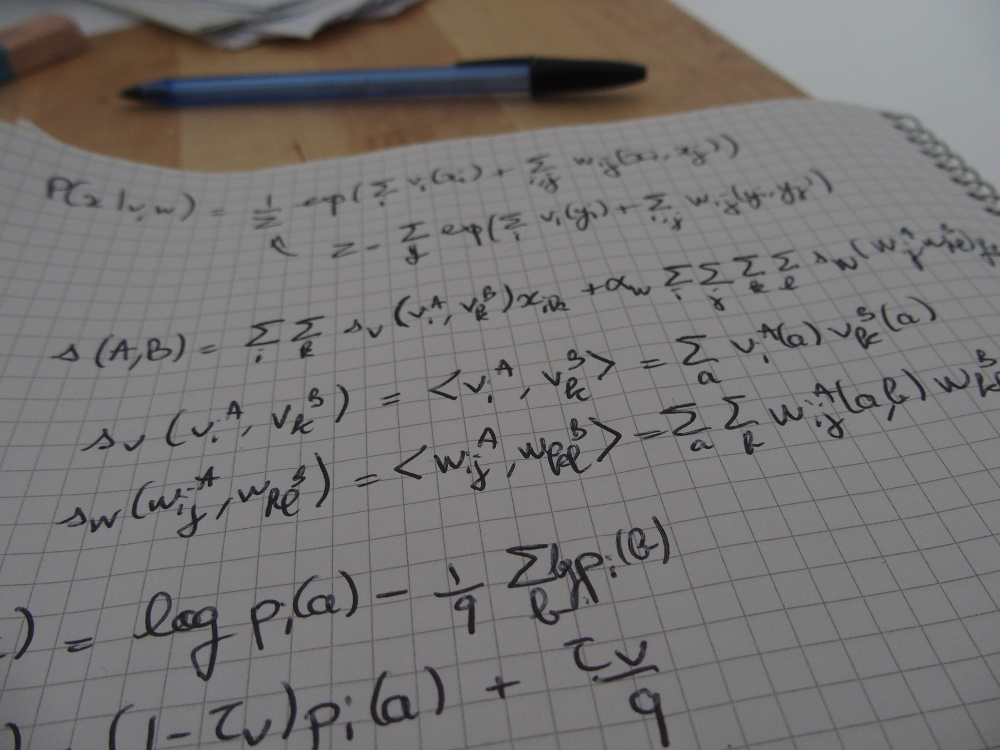 P(x|v,w) = 1/Z exp(Σ_i v_i(x_i) + Σ_{i,j} w_{ij}(x_i, x_j))
Z = Σ_y exp(Σ_i v_i(y_i) + Σ_{i,j} w_{ij}(y_i, y_j))
s(A,B) = Σ_i Σ_k s_v(v_i^A, v_k^B) x_{ik} + α_w Σ_i Σ_j Σ_k Σ_l s_w(w_{ij}^A, w_{kl}^B)
s_v(v_i^A, v_k^B) = <v_i^A, v_k^B> = Σ_a v_i^A(a) v_k^B(a)
s_w(w_{ij}^A, w_{kl}^B) = <w_{ij}^A, w_{kl}^B> = Σ_a Σ_b w_{ij}^A(a,b) w_{kl}^B
) = log p_i(a) - 1/q Σ_b log p_i(b)
(1-τ_v) p_i(a) + τ_v/q